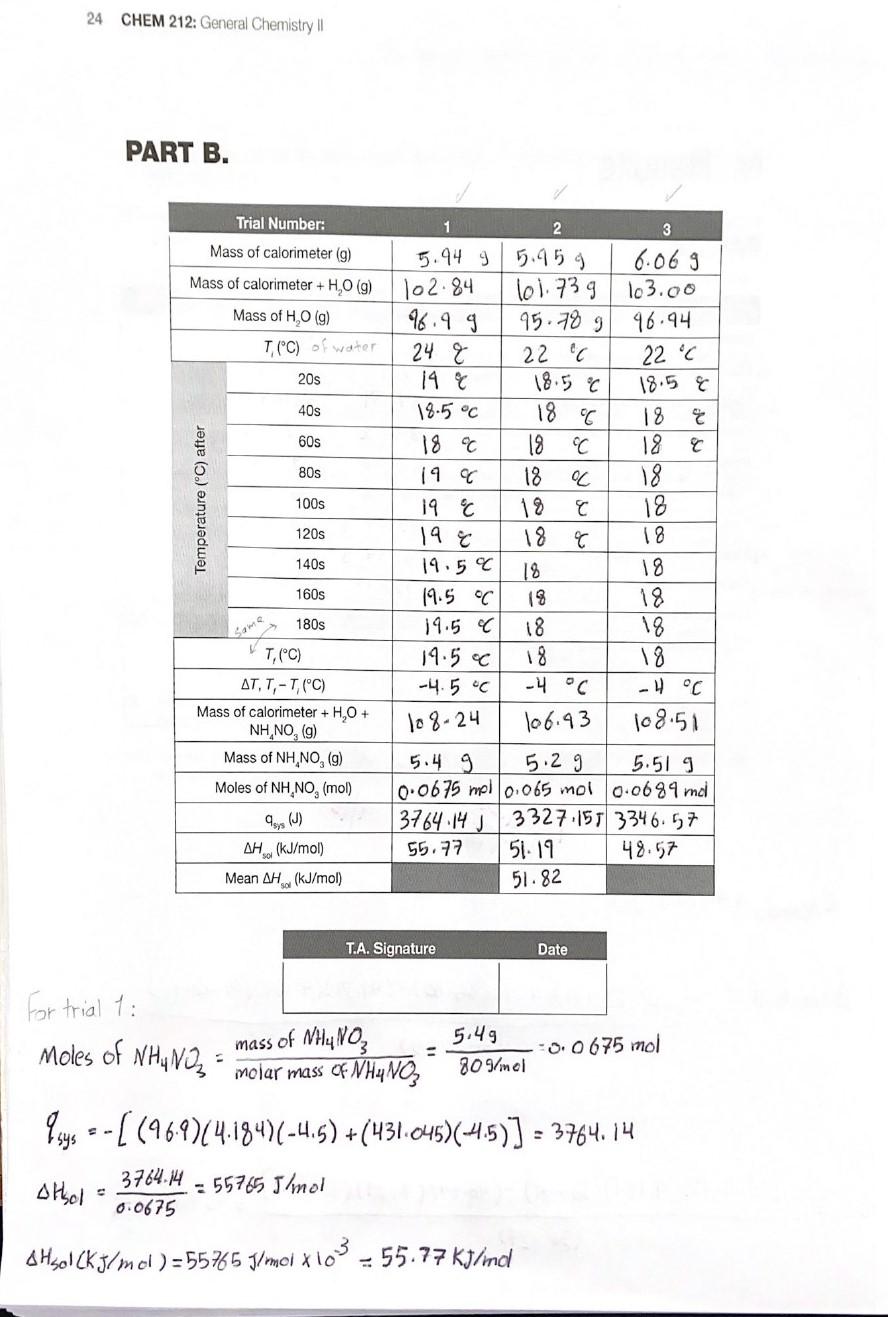 24 CHEM 212: General Chemistry II
PART B.
Trial Number: 1 2 3
Mass of calorimeter (g) 5.94 g 5.95 g 6.06 g
Mass of calorimeter + H₂O (g) 102.84 101.73 g 103.00
Mass of H₂O (g) 96.9 g 95.78 g 96.94
Tᵢ (°C) of water 24 °C 22 °C 22 °C
Temperature (°C) after
20s 19 °C 18.5 °C 18.5 °C
40s 18.5 °C 18 °C 18 °C
60s 18 °C 18 °C 18 °C
80s 19 °C 18 °C 18
100s 19 °C 18 °C 18
120s 19 °C 18 °C 18
140s 19.5 °C 18 18
160s 19.5 °C 18 18
same 180s 19.5 °C 18 18
T_f (°C) 19.5 °C 18 18
ΔT, T_f – Tᵢ (°C) -4.5 °C -4 °C -4 °C
Mass of calorimeter + H₂O +
NH₄NO₃ (g) 108.24 106.93 108.51
Mass of NH₄NO₃ (g) 5.4 g 5.2 g 5.51 g
Moles of NH₄NO₃ (mol) 0.0675 mol 0.065 mol 0.0689 mol
q_sys (J) 3764.14 J 3327.15 J 3346.57
ΔH_sol (kJ/mol) 55.77 51.19 48.57
Mean ΔH_sol (kJ/mol) 51.82
T.A. Signature Date
For trial 1:
Moles of NH₄NO₃ = mass of NH₄NO₃ / molar mass of NH₄NO₃ = 5.4g / 80g/mol = 0.0675 mol
q_sys = -[(96.9)(4.184)(-4.5) + (431.045)(-4.5)] = 3764.14
ΔHsol = 3764.14 / 0.0675 = 55765 J/mol
ΔHsol (KJ/mol) = 55765 J/mol x 10⁻³ = 55.77 KJ/mol